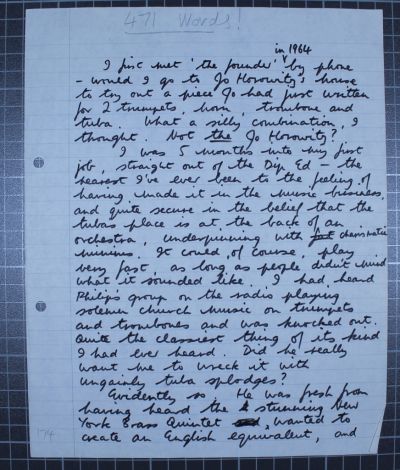 471 Words!
in 1964
I first met 'the founder' by phone
- would I go to Jo Horowitz's house
to try out a piece Jo had just written
for 2 trumpets, horn, trombone and
tuba. What a silly combination, I
thought. Not the Jo Horowitz?
I was 5 months into my first
job, straight out of the Dip Ed - the
nearest I've ever been to the feeling of
having made it in the music business,
and quite secure in the belief that the
tubas place is at the back of an
orchestra, underpinning with charismatic
minims. It could, of course, play
very fast, as long as people didn't mind
what it sounded like. I had heard
Philip's group on the radio playing
solemn church music on trumpets
and trombones and was knocked out.
Quite the classiest thing of its kind
I had ever heard. Did he really
want me to wreck it with
ungainly tuba splodges?
Evidently so. He was fresh from
having heard the stunning New
York Brass Quintet, wanted to
create an English equivalent, and
174